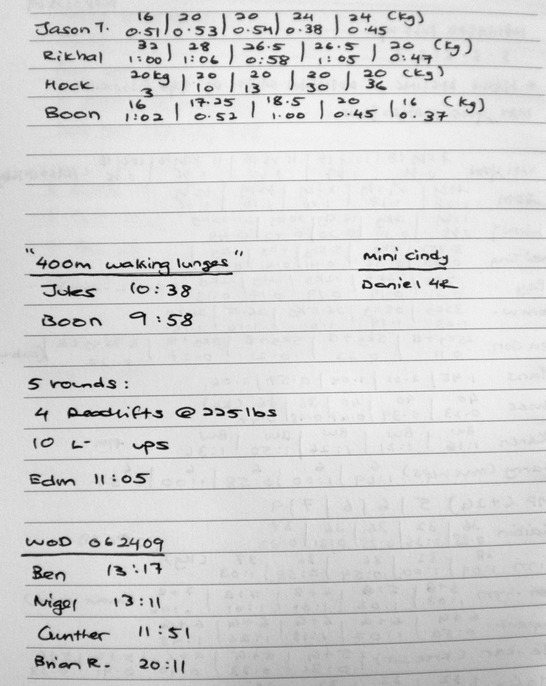 16 | 20 | 20 | 24 | 24 (kg)
Jason T. 0.51 | 0.53 | 0.54 | 0.38 | 0.45
32 | 28 | 26.5 | 26.5 | 20 (kg)
Rikhal 1:00 | 1:06 | 0:58 | 1:05 | 0:47
20kg | 20 | 20 | 20 | 20 (kg)
Hock 3 | 10 | 13 | 30 | 36
16 | 17.25 | 18.5 | 20 | 16 (kg)
Boon 1:02 | 0.52 | 1.00 | 0.45 | 0.37
"400m walking lunges" mini cindy
Jukes 10:38 Daniel 4R
Boon 9:58
5 rounds:
4 Deadlifts @ 225lbs
10 L- ups
Edm 11:05
WOD 062409
Ben 13:17
Nigel 13:11
Gunther 11:51
Brian R. 20:11